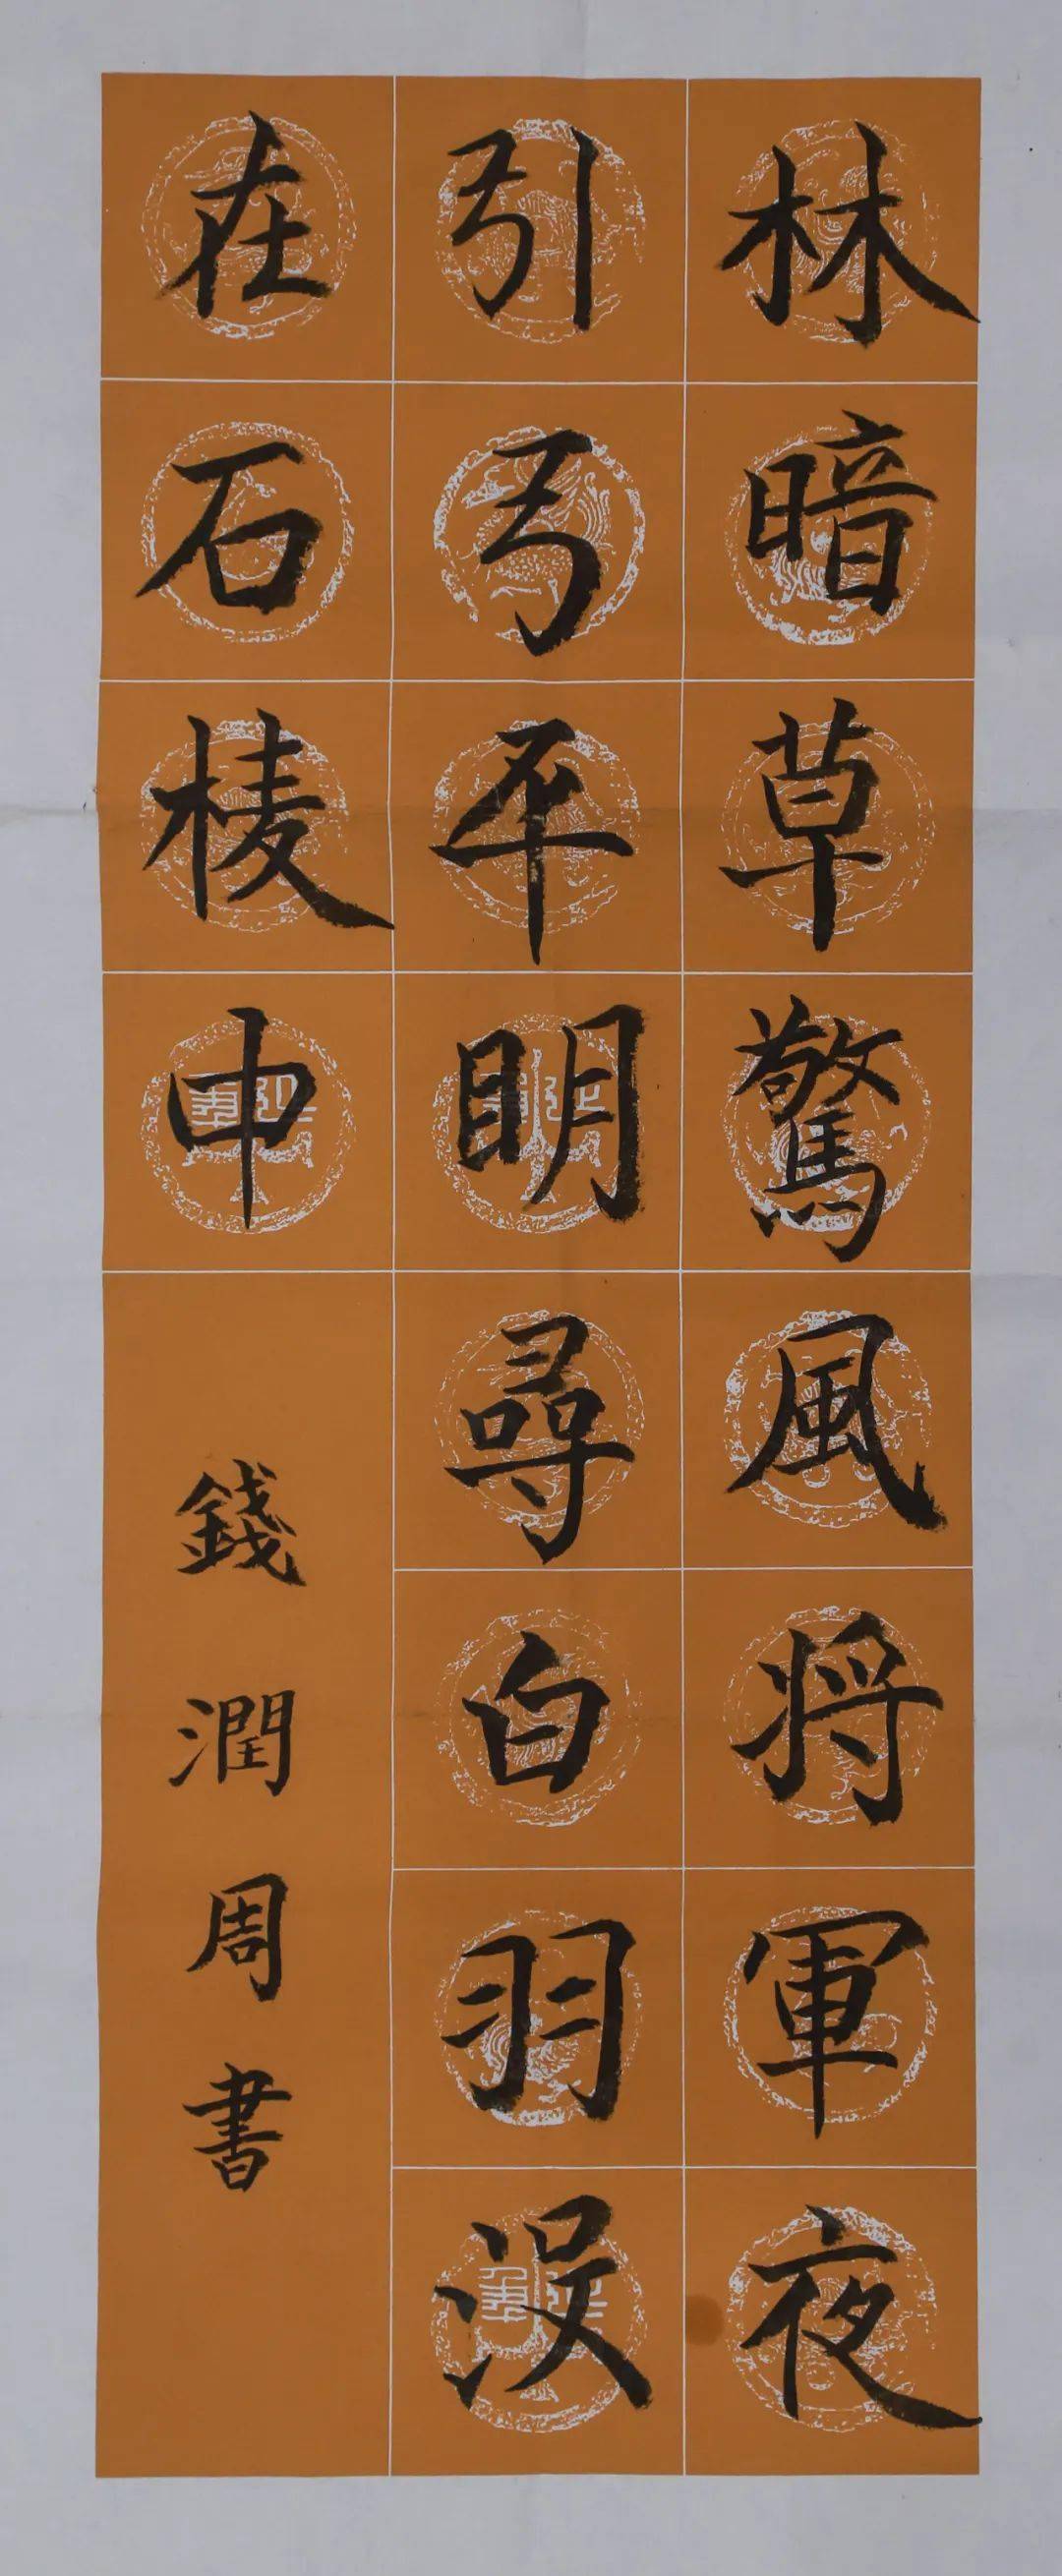 林暗草驚風将軍夜
引弓平明尋白羽没
在石棱中
錢潤周書